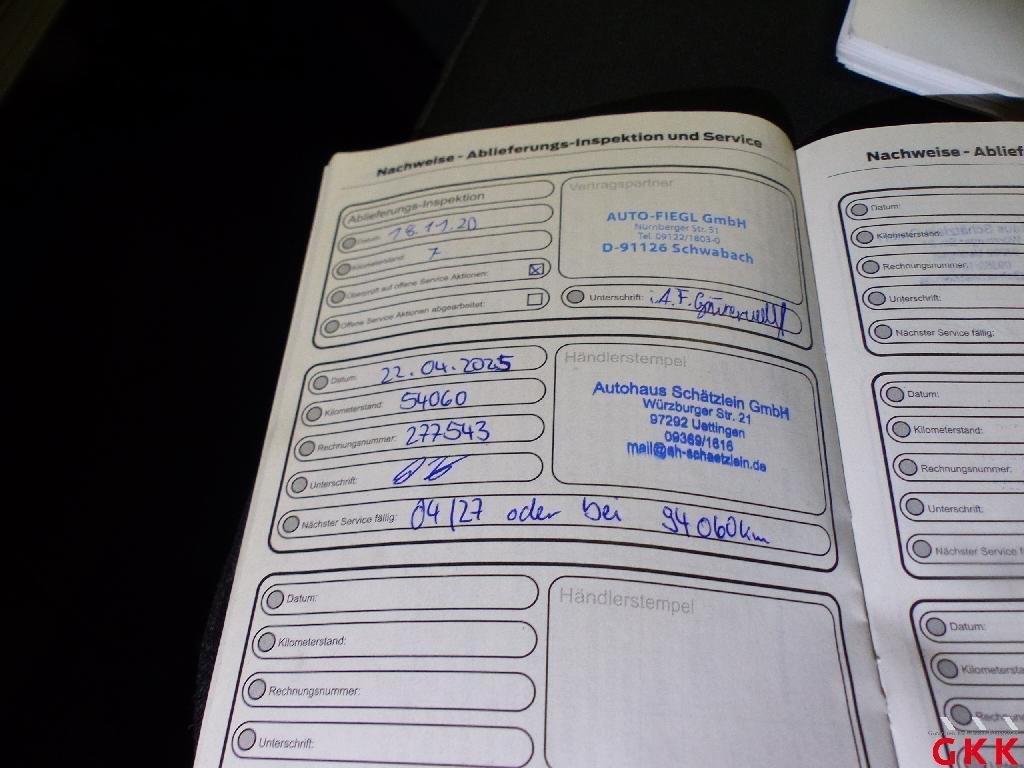 Nachweise - Ablieferungs-Inspektion und Service
Ablieferungs-Inspektion
18.11.20
Kilometerstand: 7
Überprüft auf offene Service Aktionen:
Offene Service Aktionen abgearbeitet:
Vertragspartner
AUTO-FIEGL GmbH
Nürnberger Str. 51
Tel. 09122/1803-0
D-91126 Schwabach
Unterschrift: i.A. F.
Datum: 22.04.2025
Kilometerstand: 54060
Rechnungsnummer: 277543
Unterschrift:
Nächster Service fällig: 04/27 oder bei 94060km
Händlerstempel
Autohaus Schätzlein GmbH
Würzburger Str. 21
97292 Uettingen
09369/1616
mail@ah-schaetzlein.de
Datum:
Kilometerstand:
Rechnungsnummer:
Unterschrift:
Händlerstempel
Nachweise - Ablief
Datum:
Kilometerstand:
Rechnungsnummer:
Unterschrift:
Nächster Service fällig:
Datum:
Kilometerstand:
Rechnungsnummer:
Unterschrift:
Nächster Service f
Datum:
Kilometerstand
Rechnun
GKK